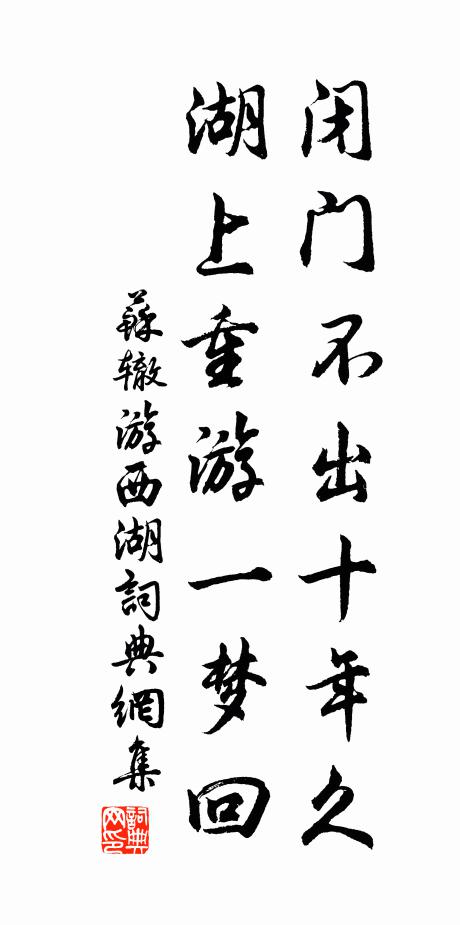 闭门不出十年久
湖上重游一梦回
蘇辙游西湖詞典網集
詞典网印